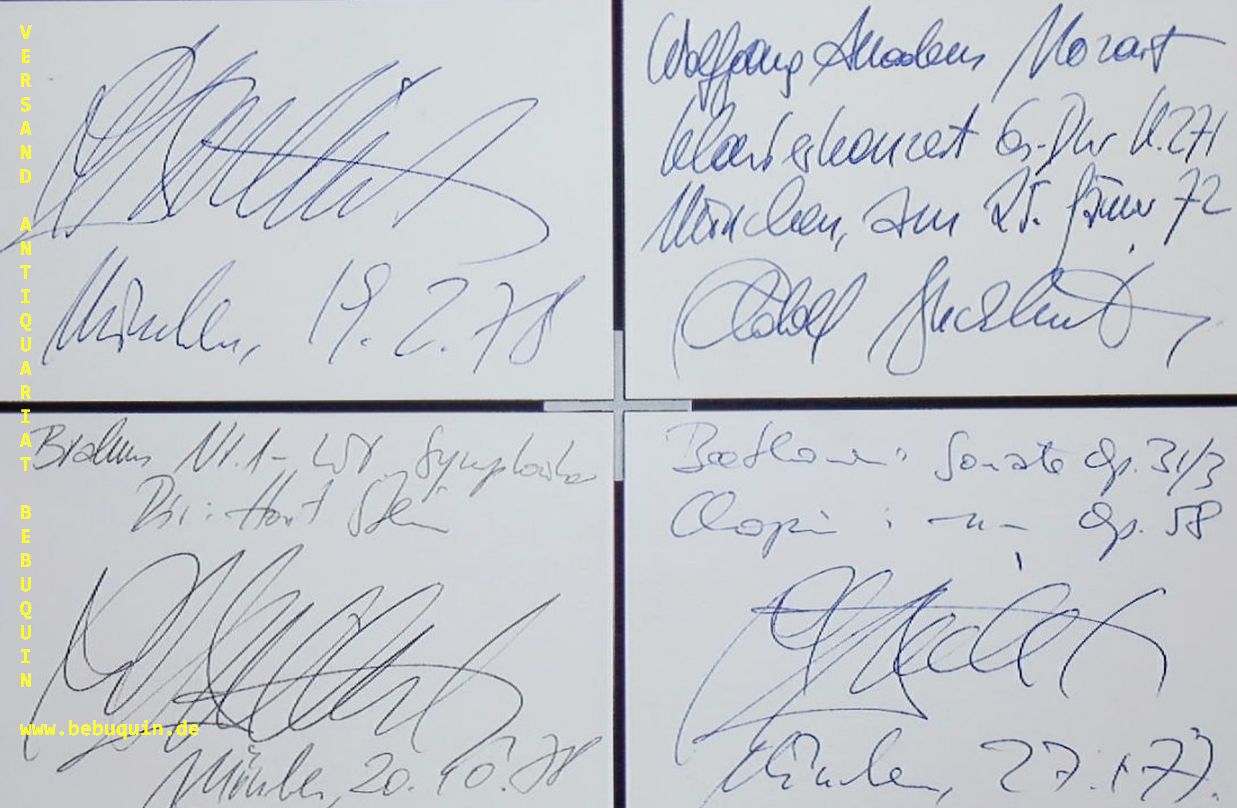 VERSAND ANTIQUARIAT BEBUQUIN
München, 19.2.78
Wolfgang Amadeus Mozart
Klavierkonzert Es-Dur K.271
München, am 25. Jänner 72
Brahms Nr.1 - Symphonike
Dir.: Horst Stein
München, 20.10.78
www.bebuquin.de
Beethoven: Sonate Op. 31/3
Chopin : - " - Op. 58
München, 27.1.77.